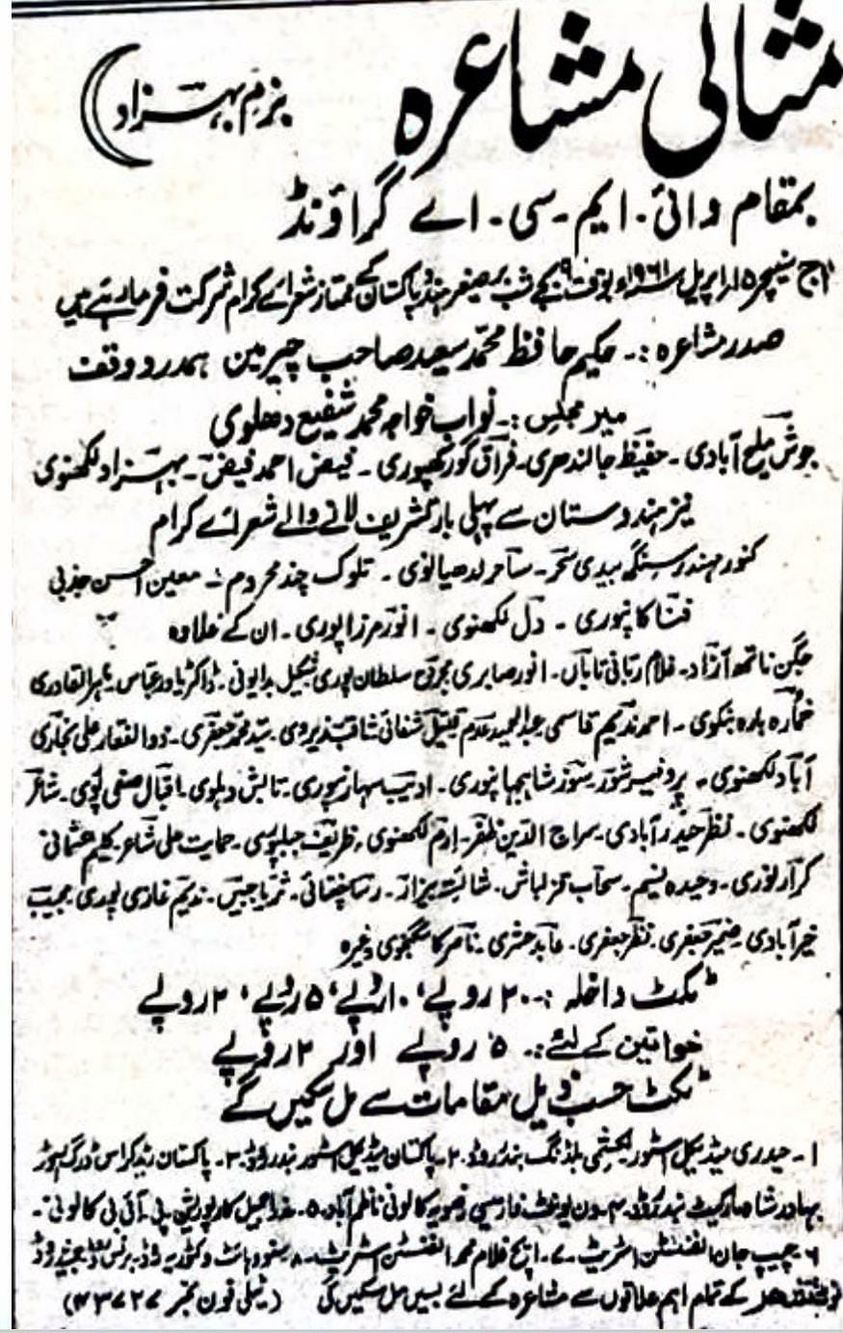 مثالی مشاعرہ
بزم بہزاد
بمقام وائی۔ ایم۔ سی۔ اے گراؤنڈ
آج سنیچر ۱۵ اپریل سنہ ۱۹۶۱ء بوقت ۹ بجے شب برصغیر ہند و پاکستان کے ممتاز شعرائے کرام شرکت فرما رہے ہیں
صدر مشاعرہ :۔ حکیم حافظ محمد سعید صاحب چیرمین ہمدرد وقف
میر مجلس :۔ نواب خواجہ محمد شفیع دھلوی
جوش ملیح آبادی۔ حفیظ جالندھری۔ فراق گورکھپوری۔ فیض احمد فیض۔ بہزاد لکھنوی
نیز ہندوستان سے پہلی بار تشریف لانے والے شعرائے کرام
کنور مہندر سنگھ بیدی سحر۔ ساحر لدھیانوی۔ تلوک چند محروم۔ معین احسن جذبی
فنا کانپوری۔ دل لکھنوی۔ انور مرزا پوری۔ ان کے علاوہ
جگن ناتھ آزاد۔ غلام ربانی تاباں۔ انور صابری مجروح سلطان پوری شکیل بدایونی۔ ڈاکٹر یاور عباس۔ ماہر القادری
خمار بارہ بنکوی۔ احمد ندیم قاسمی عبدالحمید عدم قتیل شفائی سید محمد جعفری۔ ذوالفقار علی بخاری
آباد لکھنوی۔ پروفیسر شور۔ سوز شاہجہانپوری۔ ادیب سہارنپوری۔ تابش دہلوی۔ اقبال صفی پوری۔ شاعر
لکھنوی۔ نظر حیدر آبادی۔ سراج الدین ظفر۔ ارم لکھنوی۔ ظریف جبلپوری۔ حمایت علی شاعر۔ کلیم عثمانی
کرار نوری۔ وحیدہ نسیم۔ سحاب قزلباش۔ رسا چغتائی۔ ندیم غازی پوری۔ مجیب
خیرآبادی۔ ضمیر جعفری۔ نظر جعفری۔ عابد حشری۔ ناصر کاسگنجوی وغیرہ
ٹکٹ داخلہ :۔ ۲۰ روپے، ۱۰ روپے، ۵ روپے، ۲ روپے
خواتین کے لئے :۔ ۵ روپے اور ۲ روپے
ٹکٹ حسب ذیل مقامات سے مل سکیں گے
۱۔ حیدری میڈیکل اسٹور لکشمی بلڈنگ بندر روڈ۔ ۲۔ پاکستان میڈیکل اسٹور بندر روڈ۔ ۳۔ پاکستان ریڈ کراس ڈرگ اسٹور
بہادر شاہ مارکیٹ بندر روڈ۔ ۴۔ فارمیسی رضویہ کالونی ناظم آباد۔ ۵۔ کارپوریشن پی۔ آئی۔ بی کالونی۔
۶۔ الفنسٹن اسٹریٹ۔ ۷۔ ایچ غلام محمد الفنسٹن اسٹریٹ۔ ۸۔ وکٹوریہ روڈ
کے تمام اہم علاقوں سے مشاعرہ کے لئے بسیں مل سکیں گی (ٹیلی فون نمبر ۷۳۷۲۷)